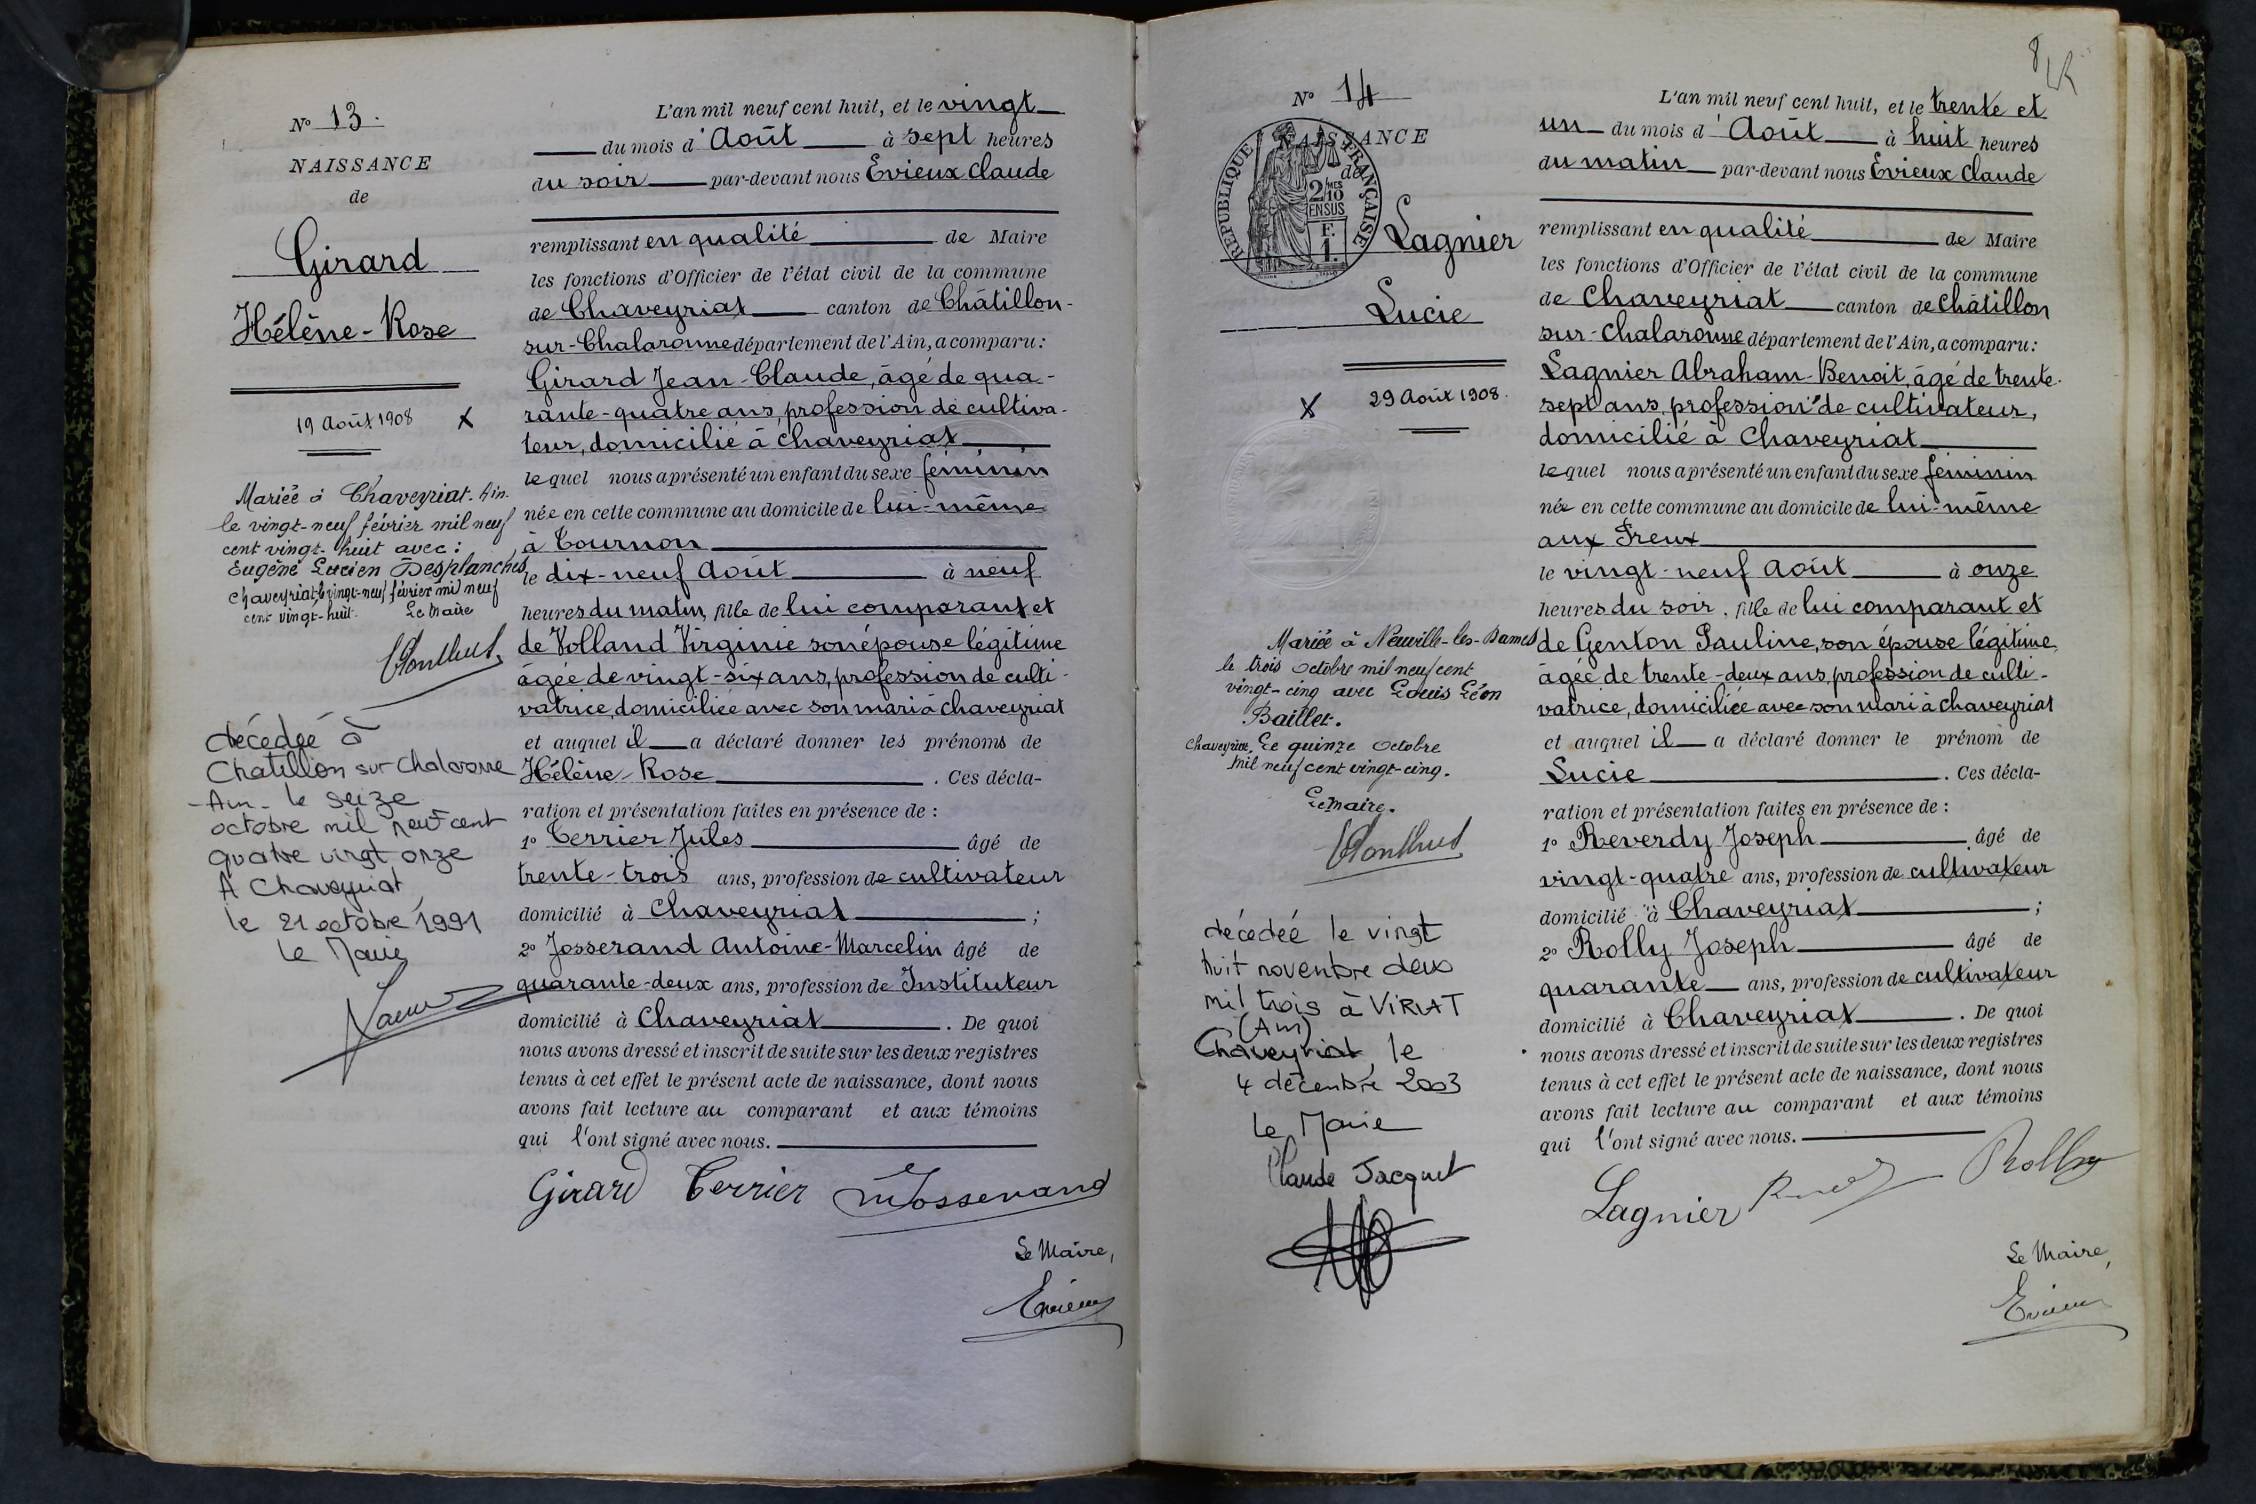 N° 13.
NAISSANCE
de
Girard
Hélène-Rose
19 Août 1908 X
Mariée à Chaveyriat. Ain.
le vingt-neuf février mil neuf
cent vingt-huit avec :
Eugène Lucien Desplanches
Chaveyriat, le vingt-neuf février mil neuf
cent vingt-huit. Le Maire
décédée à
Chatillon sur Chalaronne
- Ain - le seize
octobre mil neuf cent
quatre vingt onze
A Chaveyriat,
le 21 octobre 1991
Le Maire
L'an mil neuf cent huit, et le vingt
du mois d'Août à sept heures
du soir par-devant nous Evieux Claude
remplissant en qualité de Maire
les fonctions d'Officier de l'état civil de la commune
de Chaveyriat canton de Châtillon-
sur-Chalaronne département de l'Ain, a comparu :
Girard Jean-Claude, âgé de qua-
rante-quatre ans, profession de cultiva-
teur, domicilié à Chaveyriat
lequel nous a présenté un enfant du sexe féminin
née en cette commune au domicile de lui-même
à Tournon
le dix-neuf Août à neuf
heures du matin, fille de lui comparant et
de Volland Virginie son épouse légitime
âgée de vingt-six ans, profession de culti-
vatrice, domiciliée avec son mari à Chaveyriat
et auquel il a déclaré donner les prénoms de
Hélène-Rose . Ces décla-
ration et présentation faites en présence de :
1° Terrier Jules âgé de
trente-trois ans, profession de cultivateur
domicilié à Chaveyriat ;
2° Josserand Antoine-Marcelin âgé de
quarante-deux ans, profession de Instituteur
domicilié à Chaveyriat . De quoi
nous avons dressé et inscrit de suite sur les deux registres
tenus à cet effet le présent acte de naissance, dont nous
avons fait lecture au comparant et aux témoins
qui l'ont signé avec nous.
Girard Terrier Josserand
Le Maire,
Evieux
8
N° 14
NAISSANCE
de
REPUBLIQUE FRANÇAISE
2/10 MES
EN SUS
F.
1.
Lagnier
Lucie
X 29 Août 1908.
Mariée à Neuville-les-Dames
le trois Octobre mil neuf cent
vingt-cinq avec Louis Léon
Baillet.
Chaveyriat, Le quinze Octobre
mil neuf cent vingt-cinq.
Le Maire.
décédée le vingt
huit novembre deux
mil trois à VIRIAT
(Ain)
Chaveyriat le
4 décembre 2003
Le Maire
Claude Jacquet
L'an mil neuf cent huit, et le trente et
un du mois d'Août à huit heures
du matin par-devant nous Evieux Claude
remplissant en qualité de Maire
les fonctions d'Officier de l'état civil de la commune
de Chaveyriat canton de Châtillon
sur-Chalaronne département de l'Ain, a comparu :
Lagnier Abraham-Benoit, âgé de trente-
sept ans, profession de cultivateur,
domicilié à Chaveyriat
lequel nous a présenté un enfant du sexe féminin
née en cette commune au domicile de lui-même
aux Freux
le vingt-neuf Août à onze
heures du soir, fille de lui comparant et
de Genton Pauline, son épouse légitime,
âgée de trente-deux ans, profession de culti-
vatrice, domiciliée avec son mari à Chaveyriat
et auquel il a déclaré donner le prénom de
Lucie . Ces décla-
ration et présentation faites en présence de :
1° Reverdy Joseph âgé de
vingt-quatre ans, profession de cultivateur
domicilié à Chaveyriat ;
2° Rolly Joseph âgé de
quarante ans, profession de cultivateur
domicilié à Chaveyriat . De quoi
nous avons dressé et inscrit de suite sur les deux registres
tenus à cet effet le présent acte de naissance, dont nous
avons fait lecture au comparant et aux témoins
qui l'ont signé avec nous.
Lagnier Rolly
Le Maire,
Evieux